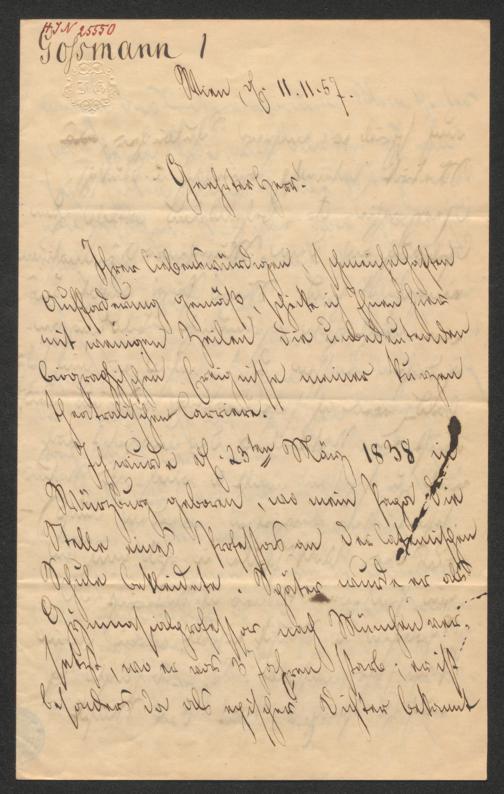 H.I.N. 25550
Gossmann 1
Wien d. 11.11.57.
Geehrter Herr.
Ihrer liebenswürdigen, schmeichelhaften
Aufforderung gemäß, schicke ich Ihnen hier
mit wenigen Zeilen die unbedeutenden
biographischen Ereignisse meiner kurzen
theatralischen Carriere.
Ich wurde d. 23ten März 1838 in
Würzburg geboren, wo mein Papa die
Stelle eines Professors an der lateinischen
Schule bekleidete. Später wurde er als
Gymnasialprofessor nach München ver-
setzt, wo er vor 3 Jahren starb; er ist
besonders da als epischer Dichter bekannt